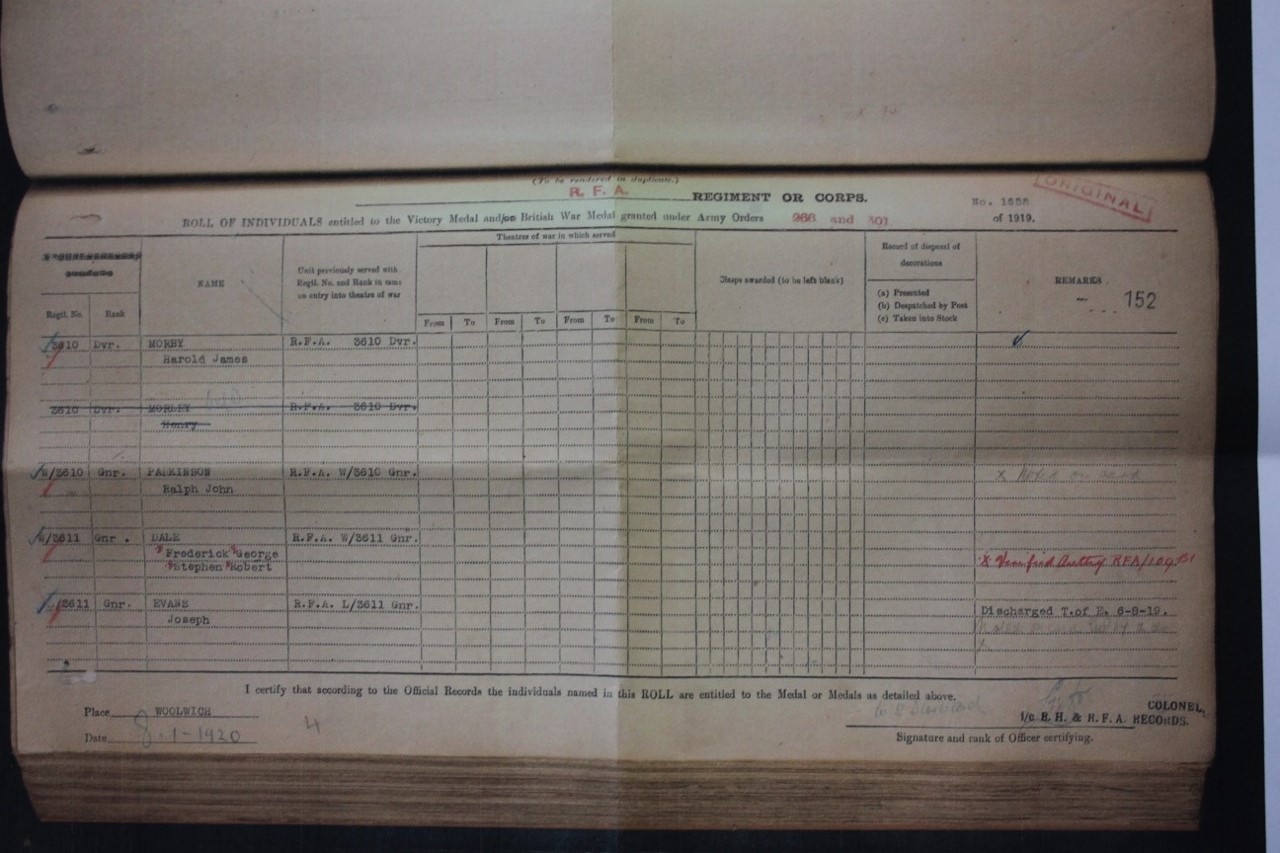 (To be rendered in duplicate.)
R. F. A. REGIMENT OR CORPS.
ORIGINAL
No. 1658
ROLL OF INDIVIDUALS entitled to the Victory Medal and/or British War Medal granted under Army Orders 266 and 301 of 1919.
Theatres of war in which served
Record of disposal of
decorations
NAME
Unit previously served with.
Regtl. No. and Rank in same
on entry into theatre of war
Clasps awarded (to be left blank)
REMARKS
152
(a) Presented
(b) Despatched by Post
(c) Taken into Stock
Regtl. No. Rank
From To From To From To From To
3610 Dvr. MORBY R.F.A. 3610 Dvr.
Harold James
3610 Dvr. MORLEY R.F.A. 3610 Dvr.
Henry
W/3610 Gnr. PARKINSON R.F.A. W/3610 Gnr. x Noted on card
Ralph John
W/3611 Gnr. DALE R.F.A. W/3611 Gnr.
Frederick George x Verified Authy RFA/109151
Stephen Robert
L/3611 Gnr. EVANS R.F.A. L/3611 Gnr. Discharged T.of E. 6-8-19.
Joseph
x
I certify that according to the Official Records the individuals named in this ROLL are entitled to the Medal or Medals as detailed above.
Place WOOLWICH
COLONEL,
i/c R. H. & R. F. A. RECORDS.
Date 8-1-1920
4
Signature and rank of Officer certifying.